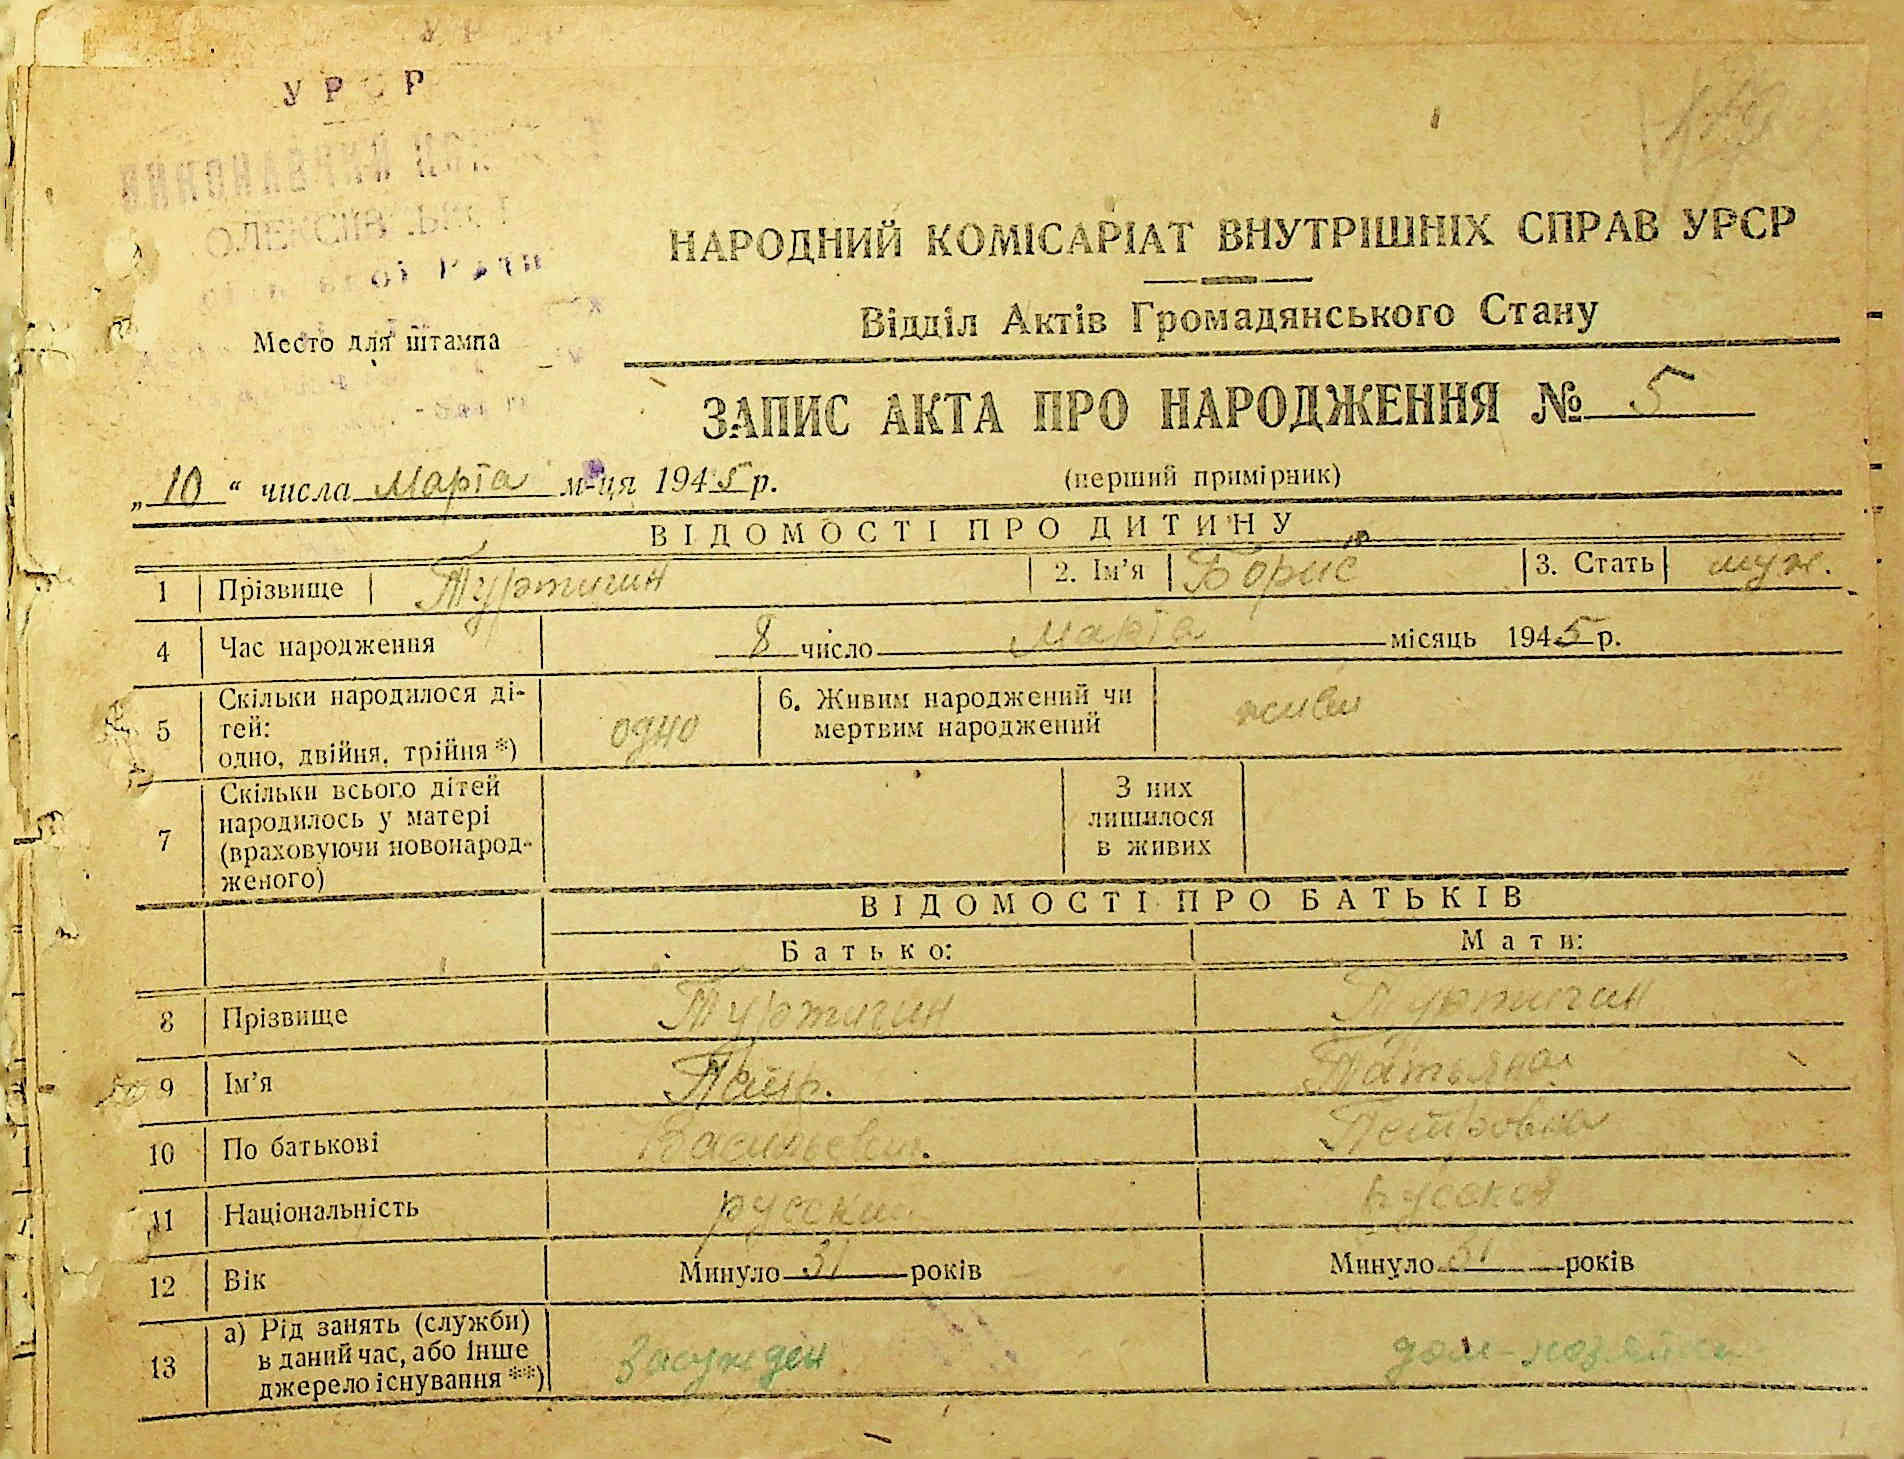 УРСР
НАРОДНИЙ КОМІСАРІАТ ВНУТРІШНІХ СПРАВ УРСР
Відділ Актів Громадянського Стану
Место для штампа
ЗАПИС АКТА ПРО НАРОДЖЕННЯ № 5
„10“ числа Марта м-ця 1945 р. (перший примірник)
ВІДОМОСТІ ПРО ДИТИНУ
1 Прізвище Туртигин 2. Ім'я Борис 3. Стать муж.
4 Час народження 8 число Марта місяць 1945 р.
5 Скільки народилося ді-
тей:
одно, двійня, трійня *) одно 6. Живим народжений чи
мертвим народжений живи
7 Скільки всього дітей
народилось у матері
(враховуючи новонарод-
женого) З них
лишилося
в живих
ВІДОМОСТІ ПРО БАТЬКІВ
Батько: Мати:
8 Прізвище Туртигин Туртигин
9 Ім'я Петр. Татьяна
10 По батькові Васильевич. Петровна
11 Національність русский русская
12 Вік Минуло 31 років Минуло 31 років
13 а) Рід занять (служби)
в даний час, або інше
джерело існування **) Засужден дом-хозяйка